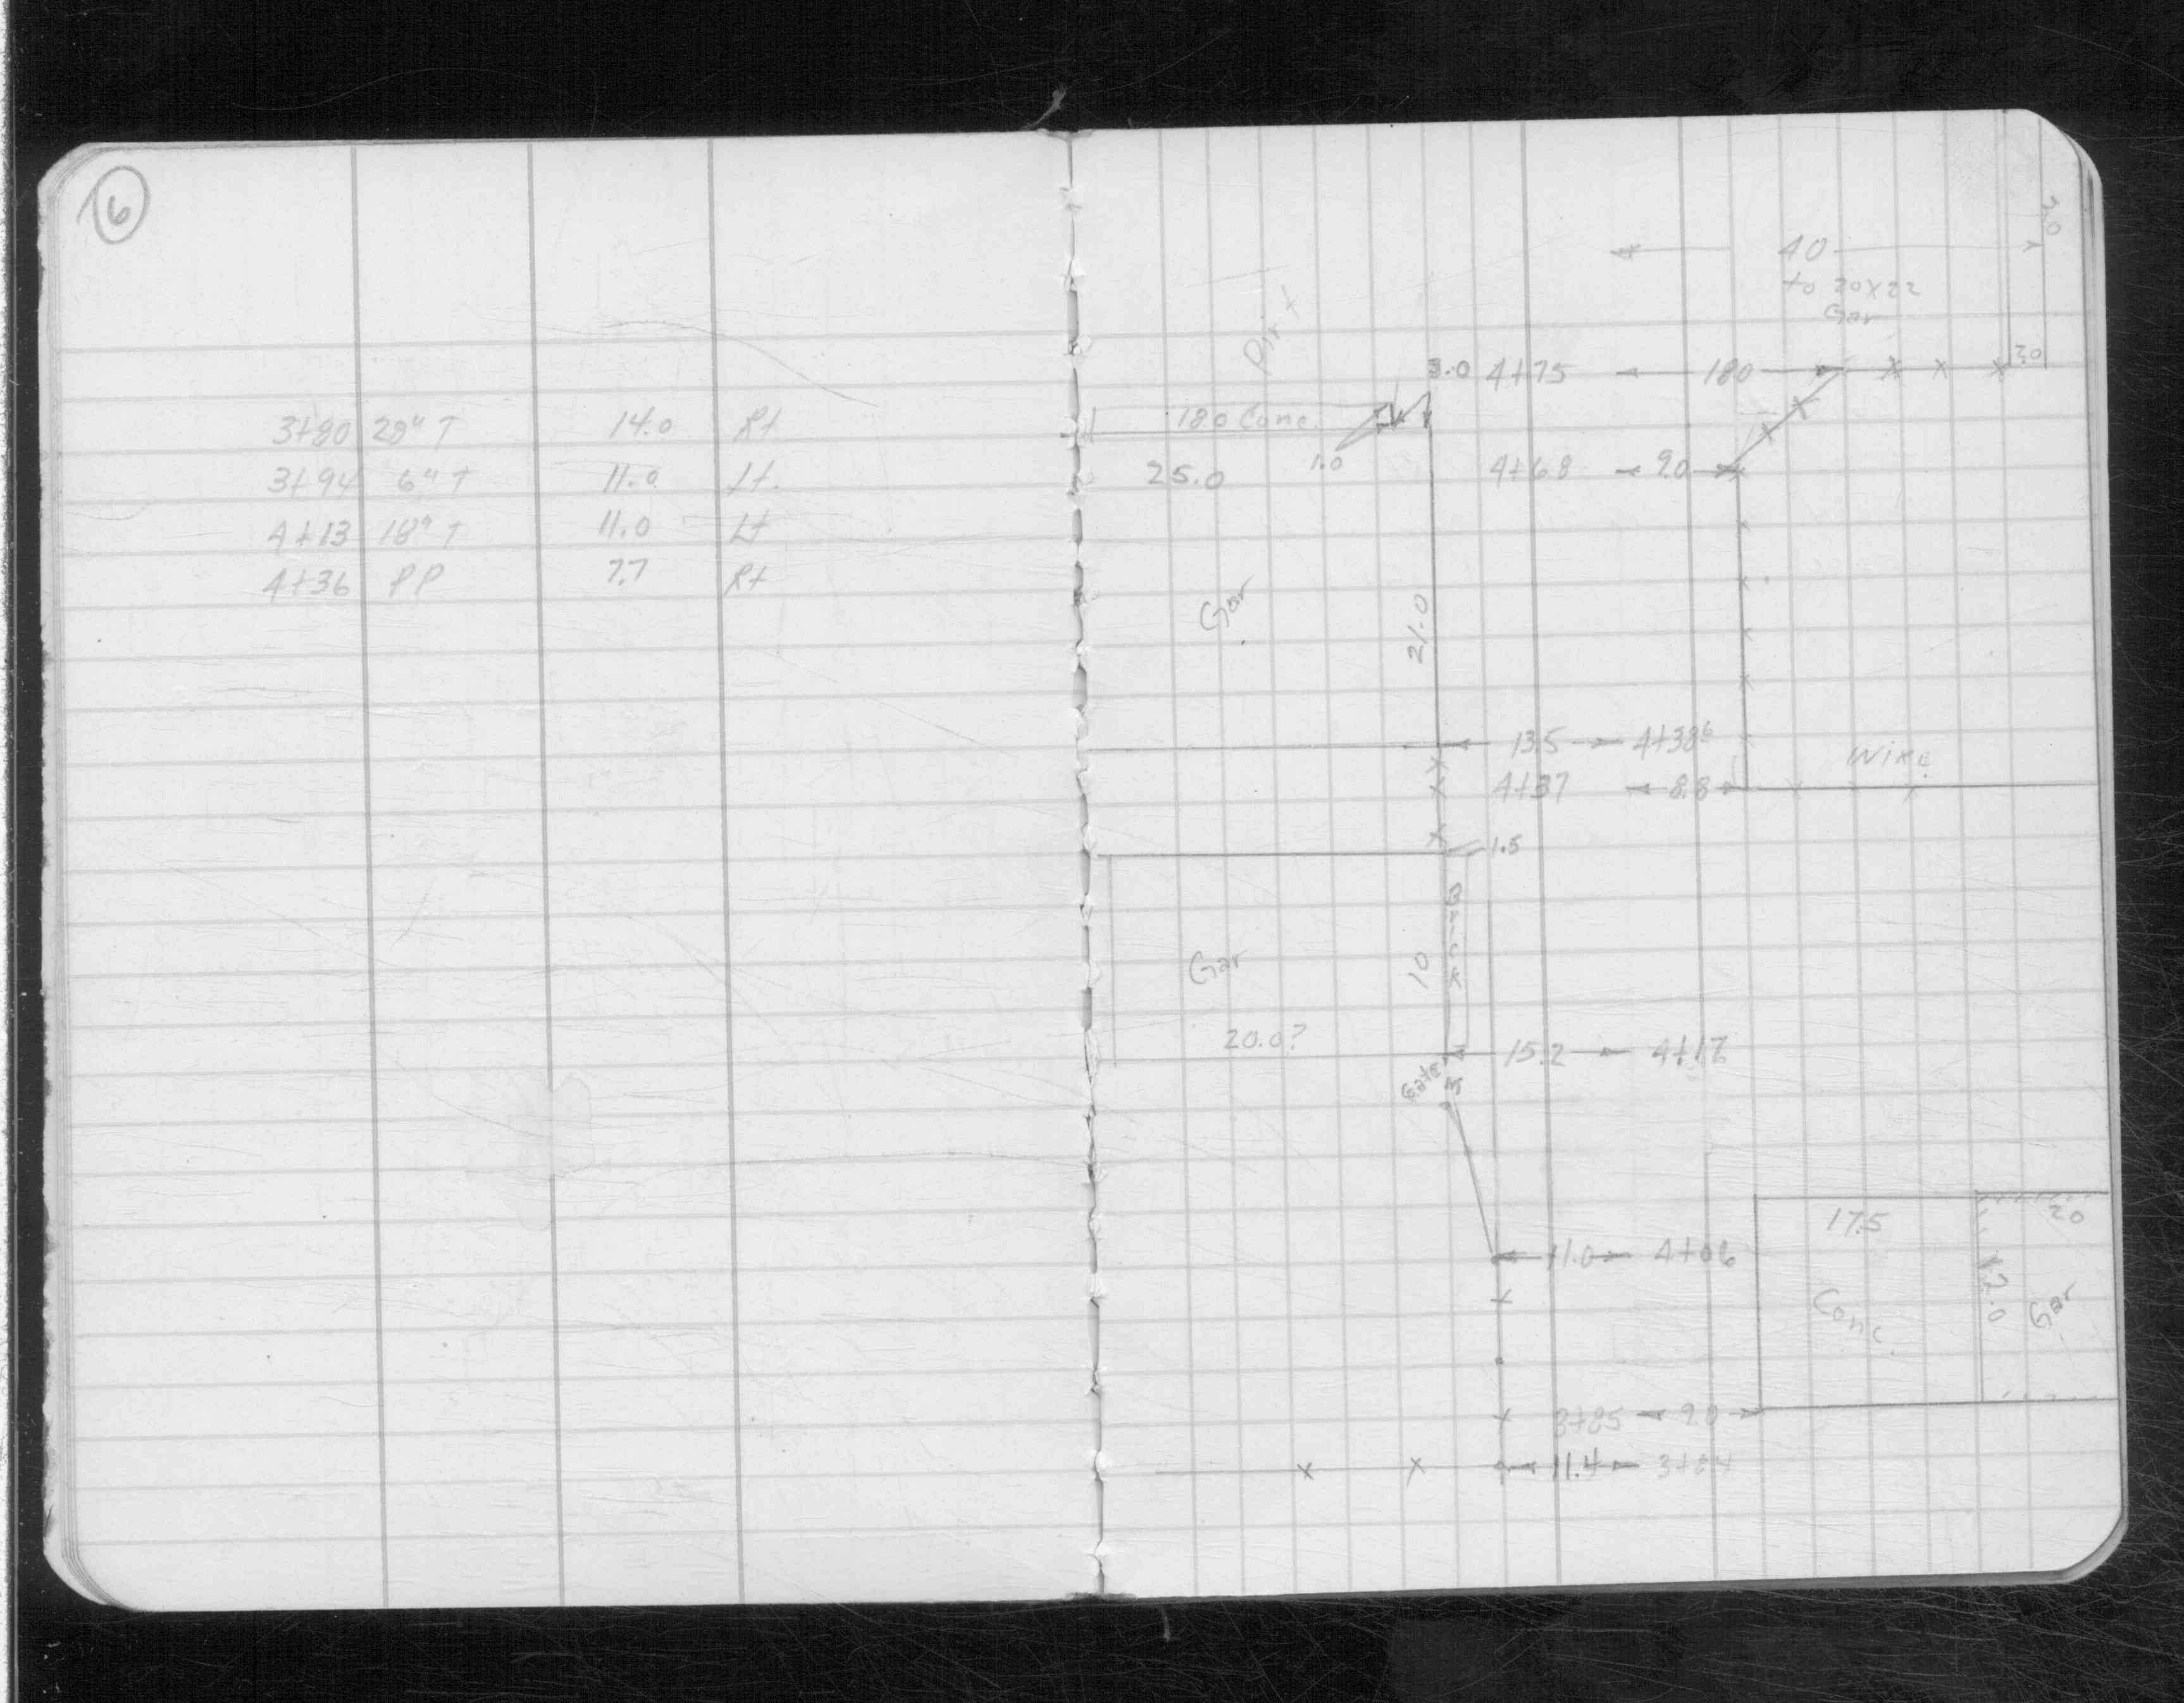 6
3+80 28" T 14.0 Rt
3+94 6" T 11.0 Lt.
4+13 18" T 11.0 Lt
4+36 PP 7.7 Rt
20
40
to 20x22
Gar
Dirt
3.0 4+75 180 20
180 Conc.
25.0 1.0 4+68 9.0
Gar
21.0
13.5 4+38⁶
Wire
4+37 8.8
1.5
Brick
Gar 10
20.0?
15.2 4+17
Gate
17.5 20
11.0 4+06
Conc. 12.0 Gar
3+85 9.0
11.4 3+84